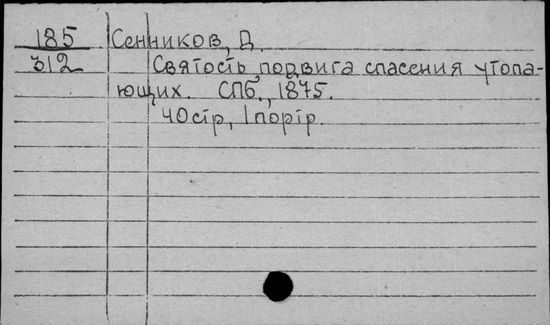 185 Сенников, Д.
312 Святость подвига спасения утопа-
ющих. СПб., 1875.
40стр, 1портр.